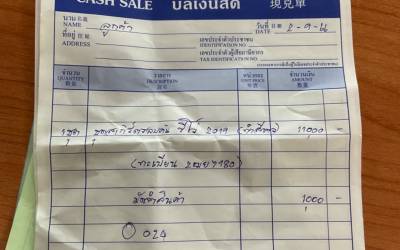 CASH SALE บิลเงินสด 現兌單
นาม 名號
NAME ลูกค้า
วันที่ 日期
DATE
ที่อยู่ 住址
ADDRESS
เลขประจำตัวประชาชน
IDENTIFICATION NO.
เลขประจำตัวผู้เสียภาษีอากร
TAX IDENTIFICATION NO.
จำนวน รายการ หน่วยละ จำนวนเงิน
QUANTITY DESCRIPTION UNIT PRICE AMOUNT
數量 貨名 單價 銀額
1 ชุด 2019 11000 -
(ทะเบียน
มัดจำสินค้า 1000 -
024